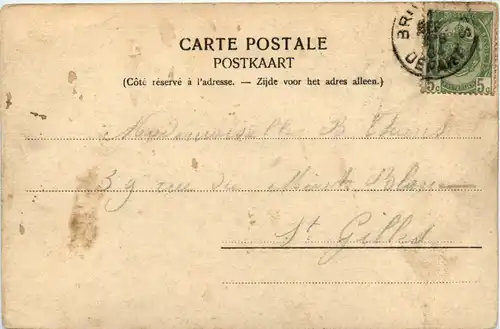 CARTE POSTALE
POSTKAART
(Côté réservé à l'adresse. — Zijde voor het adres alleen.)
DEPART
5c 5c
Mesdemoiselles B
39 rue du Mont Blanc
St Gilles